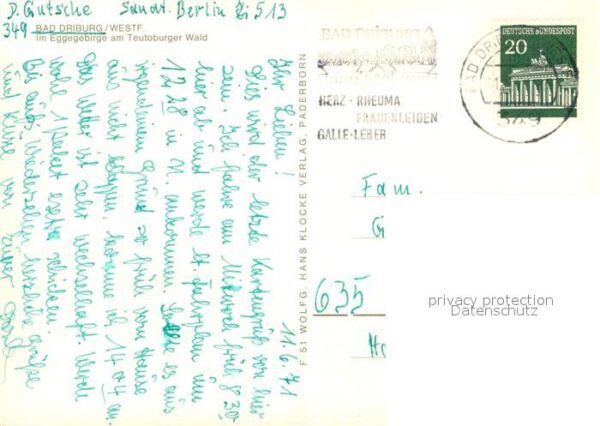 D. Gutsche Sanat. Berlin Zi 513
349 BAD DRIBURG/WESTF.
im Eggegebirge am Teutoburger Wald
11.6.71
Ihr Lieben!
Dies wird der letzte Kartengruß von hier
sein. Ich fahre am Mittwoch früh 8 30
hier ab und werde lt. Fahrplan um
12 28 in N. ankommen. Sollte es aus
irgendeinem Grund so früh vom Hause
aus nicht klappen, komme ich 14 04 an.
Das Wetter ist sehr wechselhaft. Werde
wohl 1 Paket erst schicken.
Bis aufs Wiedersehen herzliche Grüße
und Küsse von Eurer
F 51 WOLFG. HANS KLOCKE VERLAG, PADERBORN
BAD DRIBURG
HERZ · RHEUMA
FRAUENLEIDEN
GALLE · LEBER
BAD DRIBURG
349
DEUTSCHE BUNDESPOST
20
Fam.
G
635
He
privacy protection
Datenschutz